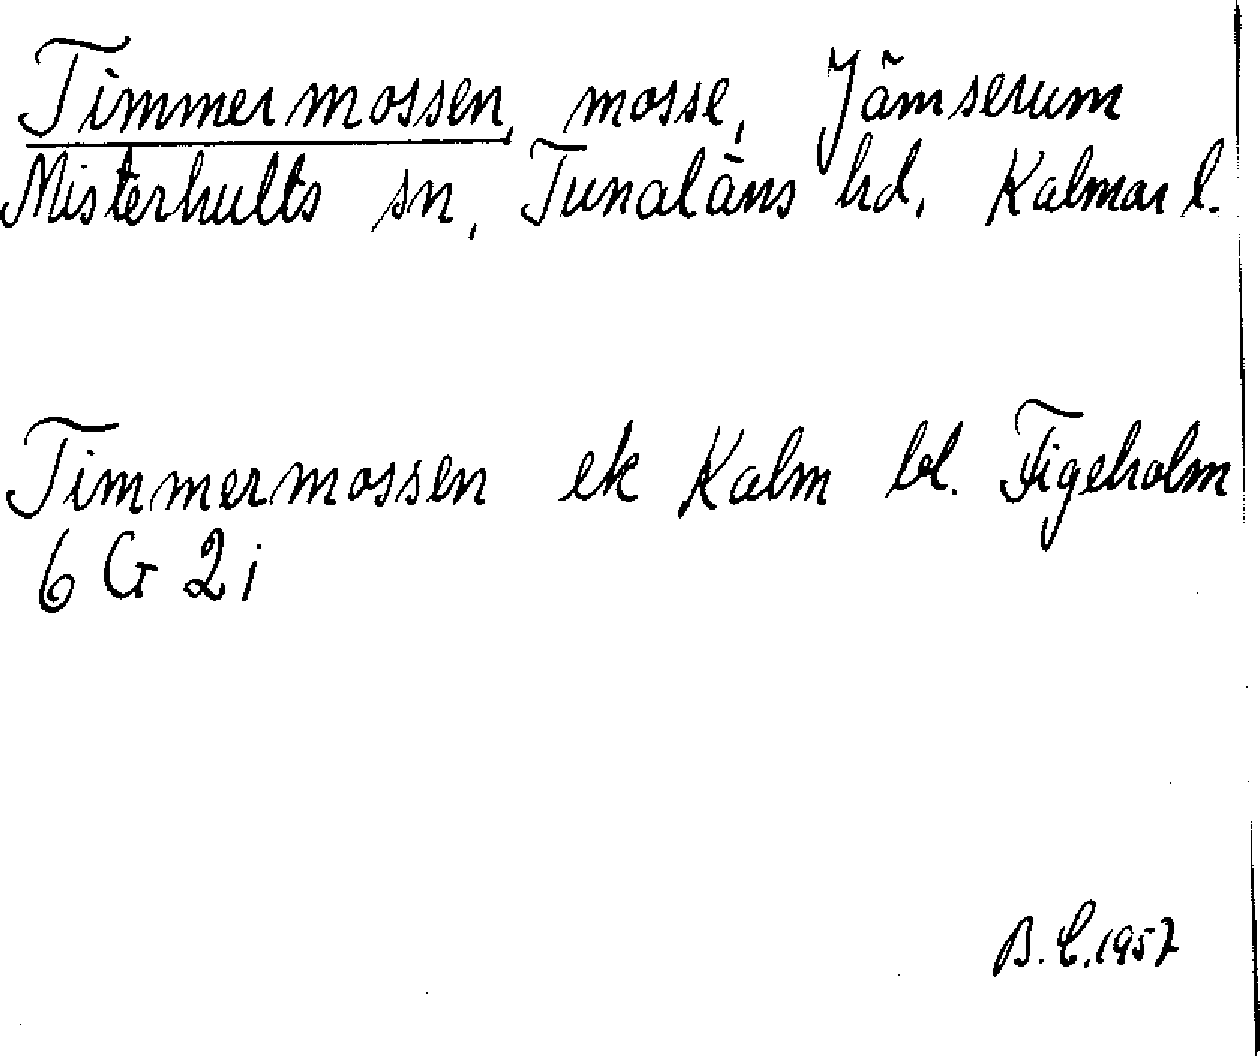 Timmermossen, mosse, Jämserum
Misterhults sn, Tunaläns hd, Kalmar l.
Timmermossen ek Kalm bl. Figeholm
6 G 2 i
B. C. 1957